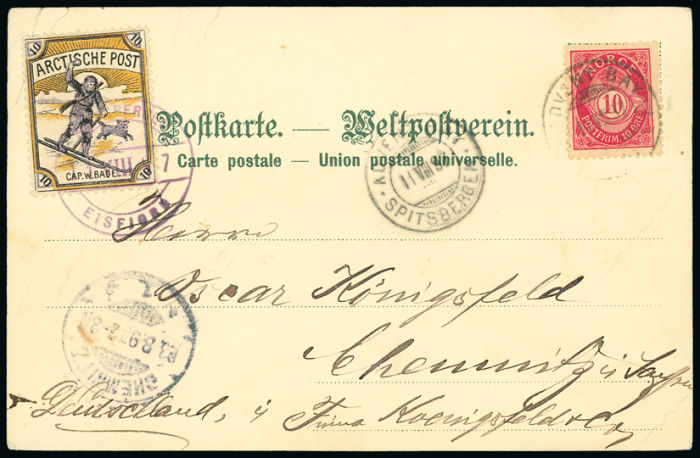 10 10
ARCTISCHE POST
CAP. W. BADE
10 10
EISFJORD
7
NORGE
10
POSTFRIM. 10 ØRE
Postkarte. — Weltpostverein.
Carte postale — Union postale universelle.
11 VIII
SPITSBERGEN
Herrn
Oscar Königsfeld
Chemnitz i/ Sachsen
Deutschland, i/ Firma Koenigsfeld & Co
CHEMNITZ
8.97